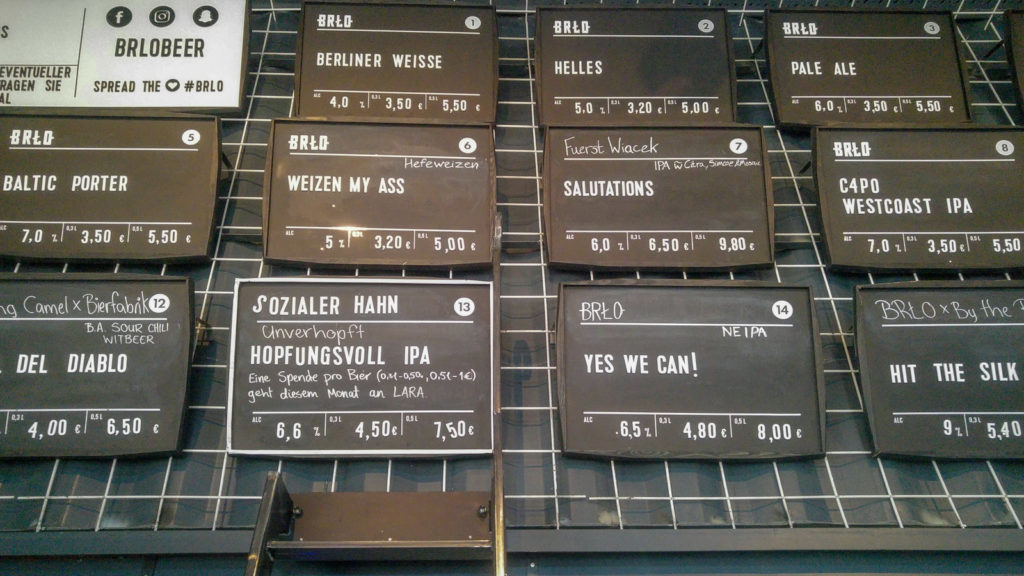 BRLOBEER
EVENTUELLER
RAGEN SIE
SPREAD THE #BRLO
BRŁO 1
BERLINER WEISSE
ALC 4,0 % 0,3L 3,50 € 0,5L 5,50 €
BRŁO 2
HELLES
ALC 5,0 % 0,3L 3,20 € 0,5L 5,00 €
BRŁO 3
PALE ALE
ALC 6,0 % 0,3L 3,50 € 0,5L 5,50 €
BRŁO 5
BALTIC PORTER
ALC 7,0 % 0,3L 3,50 € 0,5L 5,50 €
BRŁO 6
Hefeweizen
WEIZEN MY ASS
ALC .5 % 0,3L 3,20 € 0,5L 5,00 €
Fuerst Wiacek 7
IPA w Citra, Simcoe & Mosaic
SALUTATIONS
ALC 6,0 % 0,3L 6,50 € 0,5L 9,80 €
BRŁO 8
C4PO
WESTCOAST IPA
ALC 7,0 % 0,3L 3,50 € 0,5L 5,50
ng Camel x Bierfabrik 12
B.A. SOUR CHILI
WITBEER
DEL DIABLO
0,3L 4,00 € 0,5L 6,50 €
SOZIALER HAHN 13
Unverhopft
HOPFUNGSVOLL IPA
Eine Spende pro Bier (0,3l-0,50, 0,5l-1€)
geht diesem Monat an LARA
ALC 6,6 % 0,3L 4,50€ 0,5L 7,50€
BRŁO 14
NEIPA
YES WE CAN!
ALC .6,5 % 0,3L 4,80 € 0,5L 8,00 €
BRŁO x By the
HIT THE SILK
ALC 9 % 0,3L 5,40